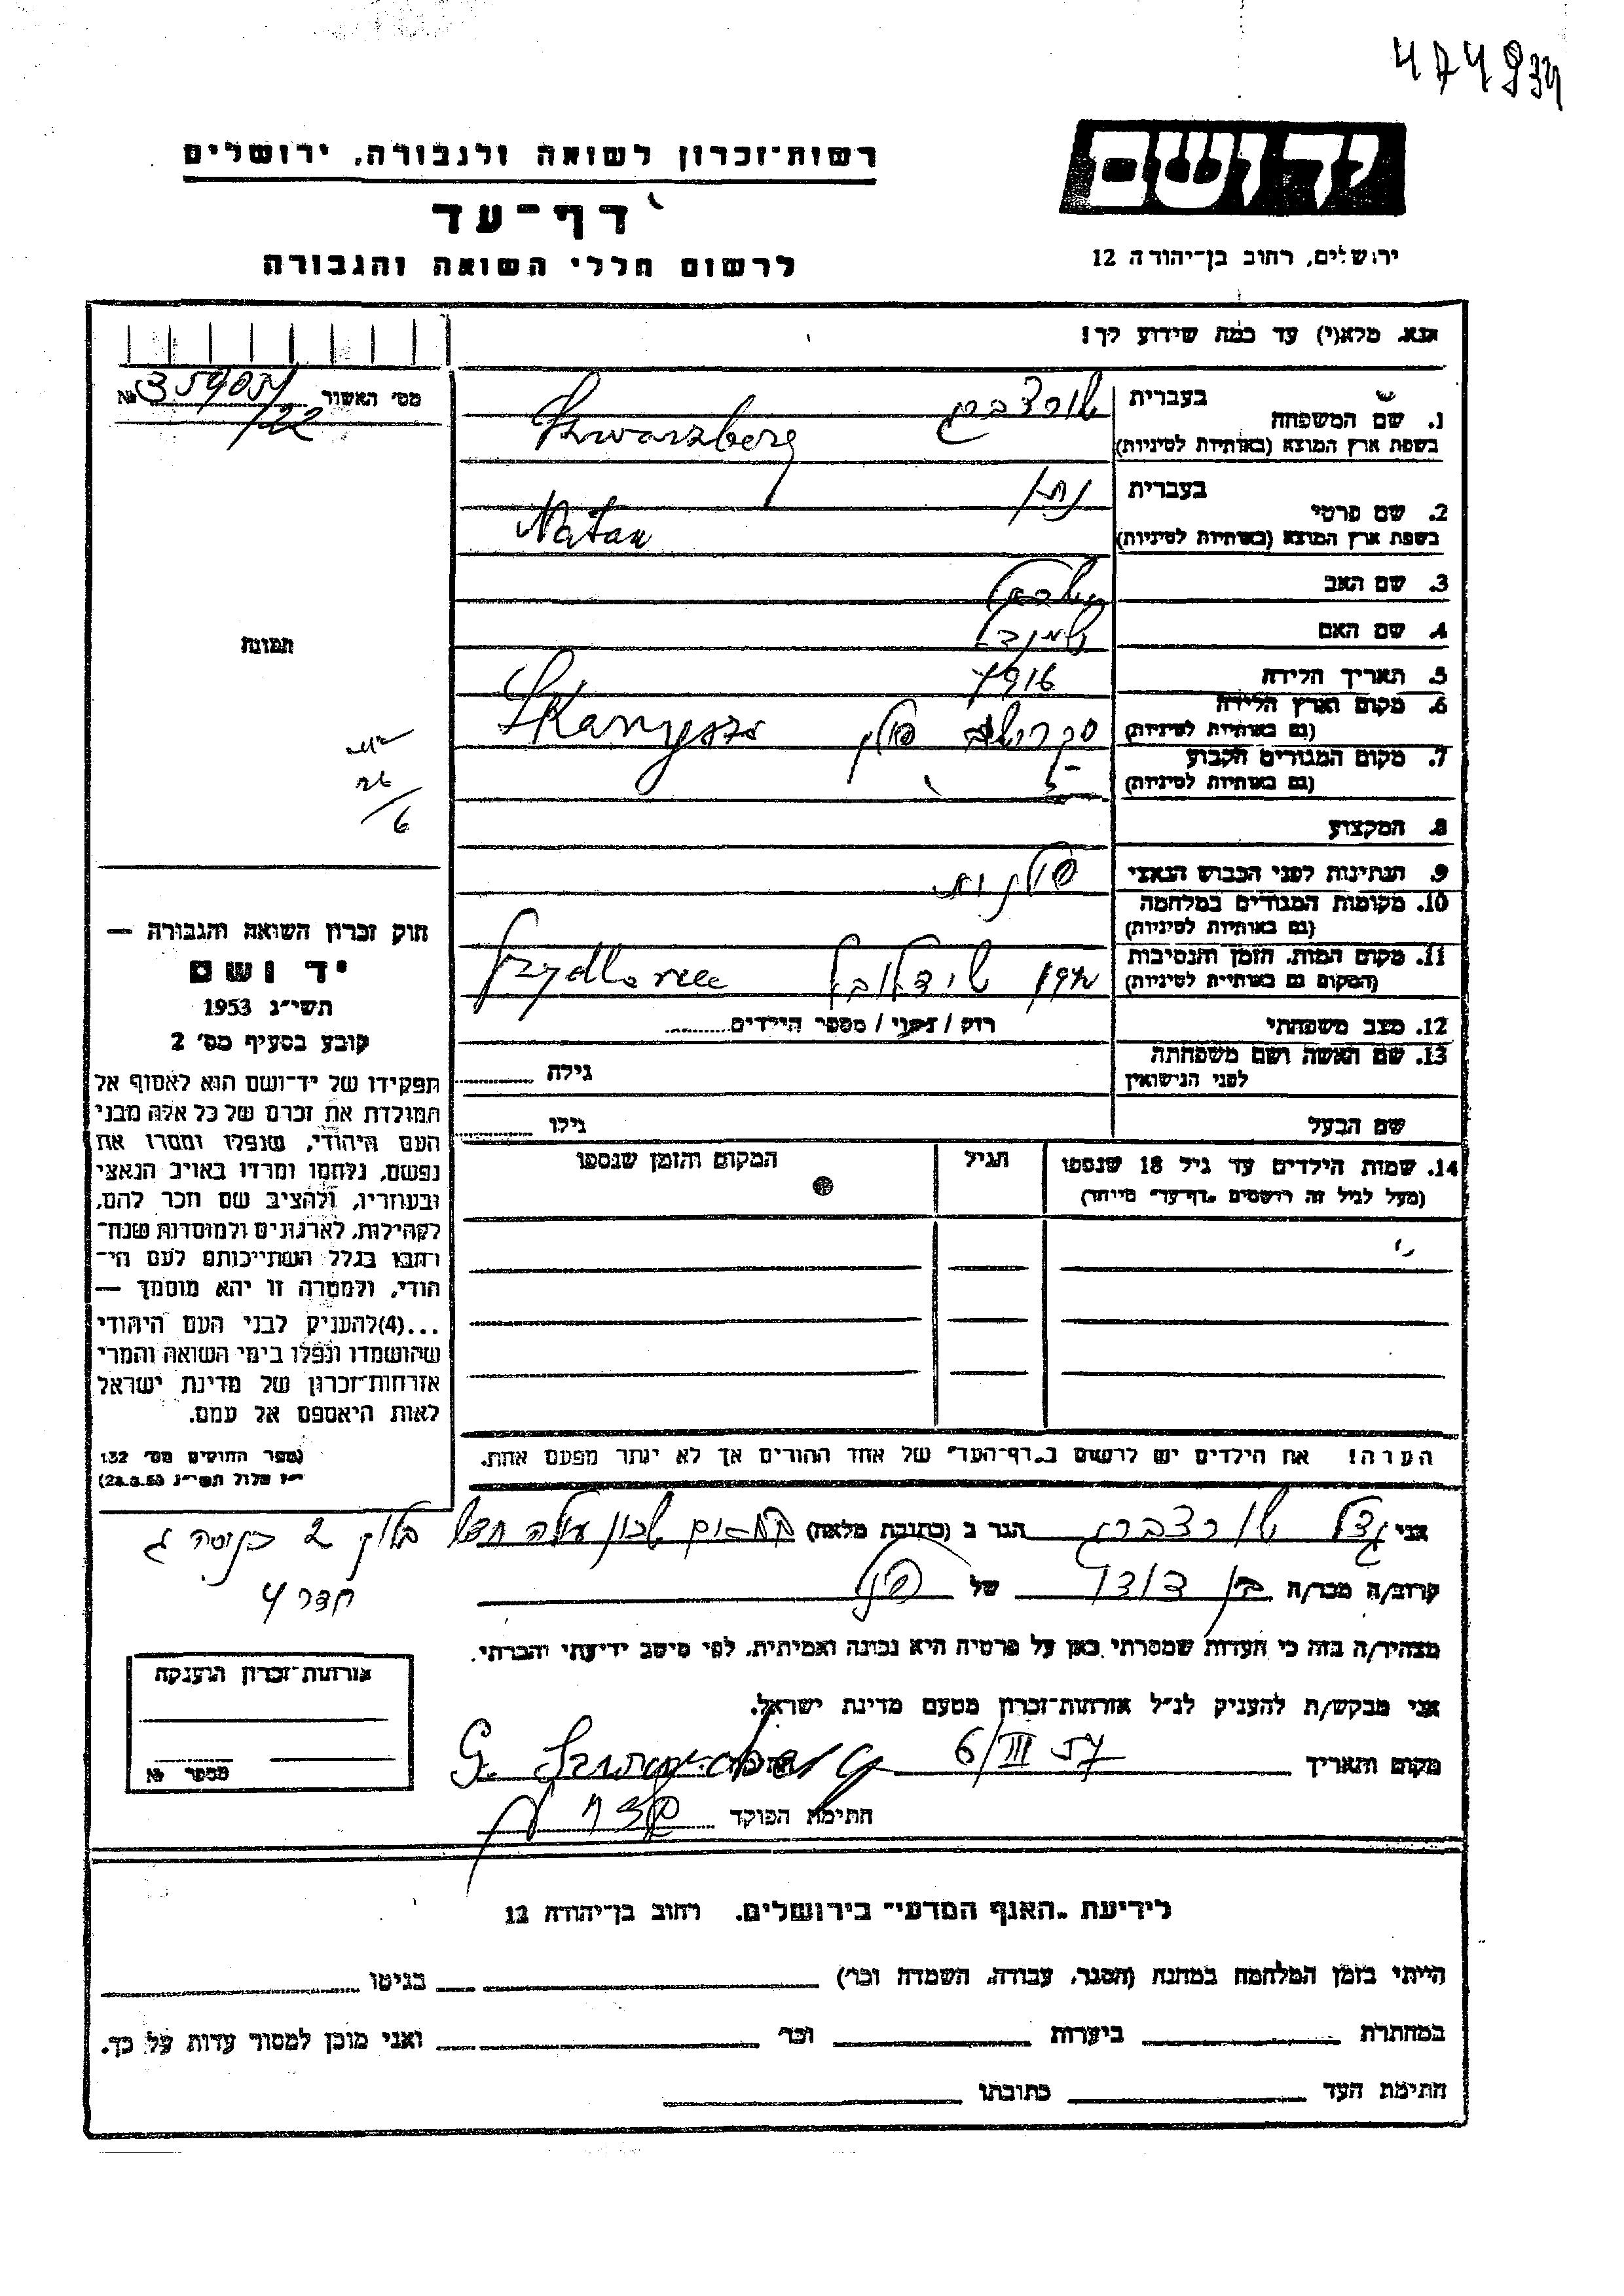 474934
רשות־זכרון לשואה ולגבורה, ירושלים
יד ושם
דף־עד
ירושלים, רחוב בן־יהודה 12
לרשום חללי השואה והגבורה
אנא, מלא(י) עד כמה שידוע לך!
מס׳ האשור №
1. שם המשפחה
בעברית שורצברג
בשפת ארץ המוצא (באותיות לטיניות)
Szwarzberg
2. שם פרטי
בעברית נתן
בשפת ארץ המוצא (באותיות לטיניות)
Natan
3. שם האב
4. שם האם
5. תאריך הלידה
6. מקום וארץ הלידה
(גם באותיות לטיניות)
פולין
7. מקום המגורים הקבוע
(גם באותיות לטיניות)
8. המקצוע
9. הנתינות לפני הכבוש הנאצי
פולנית
10. מקומות המגורים במלחמה
(גם באותיות לטיניות)
11. מקום המות, הזמן והנסיבות
(המקום גם באותיות לטיניות)
שידלובץ
12. מצב משפחתי
רווק / נשוי / מספר הילדים
13. שם האשה ושם משפחתה
לפני הנישואין
גילה
שם הבעל
גילו
14. שמות הילדים עד גיל 18 שנספו
(מעל לגיל זה רושמים „דף־עד״ מיוחד)
הגיל
המקום והזמן שנספו
תמונה
חוק זכרון השואה והגבורה —
יד ושם
תשי״ג 1953
קובע בסעיף מס׳ 2
תפקידו של יד־ושם הוא לאסוף אל
המולדת את זכרם של כל אלה מבני
העם היהודי, שנפלו ומסרו את
נפשם, נלחמו ומרדו באויב הנאצי
ובעוזריו, ולהציב שם וזכר להם,
לקהילות, לארגונים ולמוסדות שנח־
רבו בגלל השתייכותם לעם הי־
הודי, ולמטרה זו יהא מוסמך —
...(4)להעניק לבני העם היהודי
שהושמדו ונפלו בימי השואה והמרי
אזרחות־זכרון של מדינת ישראל
לאות היאספם אל עמם.
(ספר החוקים מס׳ 132
י״ז אלול תשי״ג 28.8.53)
הערה! את הילדים יש לרשום ב„דף־העד״ של אחד ההורים אך לא יותר מפעם אחת.
אני גדל שורצברג הגר ב (כתובת מלאה) שכון עולה חדש בלוק 2 כניסה ג
חדר 4
קרוב/ה מכר/ה בן דודו של
מצהיר/ה בזה כי העדות שמסרתי כאן על פרטיה היא נכונה ואמיתית, לפי מיטב ידיעתי והכרתי.
אני מבקש/ת להעניק לנ״ל אזרחות־זכרון מטעם מדינת ישראל.
מקום ותאריך 6/III 57
G. Szwarzberg
חתימת הפוקד
אזרחות־זכרון הוענקה
מספר №
לידיעת „האגף המדעי״ בירושלים, רחוב בן־יהודה 12
הייתי בזמן המלחמה במחנה (הסגר, עבודה, השמדה וכו׳) בגיטו
במחתרת ביערות וכו׳ ואני מוכן למסור עדות על כך.
חתימת העד כתובתו